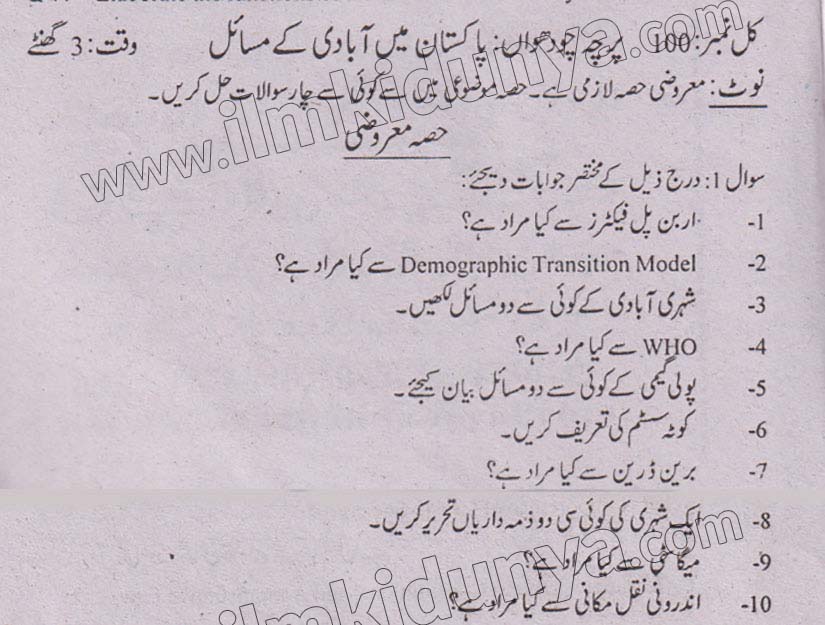 کل نمبر: 100 پرچہ چودھواں: پاکستان میں آبادی کے مسائل وقت: 3 گھنٹے
نوٹ: معروضی حصہ لازمی ہے۔ حصہ موضوعی میں سے کوئی سے چار سوالات حل کریں۔
حصہ معروضی
www.ilmkidunya.com
سوال 1: درج ذیل کے مختصر جوابات دیجئے:
1- اربن پل فیکٹرز سے کیا مراد ہے؟
2- Demographic Transition Model سے کیا مراد ہے؟
3- شہری آبادی کے کوئی سے دو مسائل لکھیں۔
4- WHO سے کیا مراد ہے؟
5- پولی گیمی کے کوئی سے دو مسائل بیان کیجئے۔
6- کوٹہ سسٹم کی تعریف کریں۔
7- برین ڈرین سے کیا مراد ہے؟
8- ایک شہری کی کوئی سی دو ذمہ داریاں تحریر کریں۔
9- میگا سٹی سے کیا مراد ہے؟
10- اندرونی نقل مکانی سے کیا مراد ہے؟
ilmkidunya.com